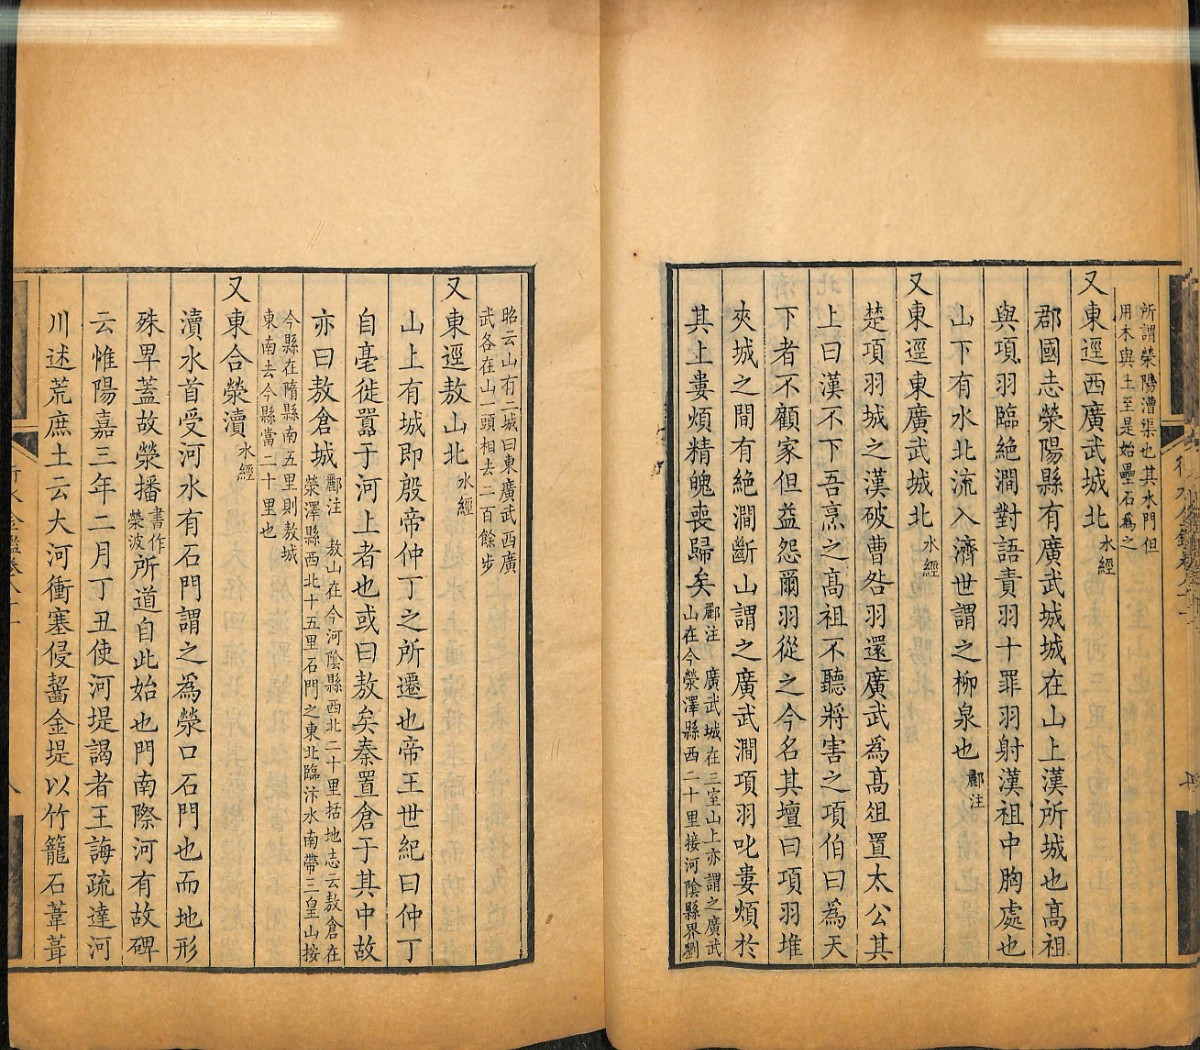 所謂滎陽漕渠也其水門但
用木與土至是始壘石爲之
又東逕西廣武城北水經
郡國志滎陽縣有廣武城城在山上漢所城也高祖
與項羽臨絶澗對語責羽十罪羽射漢祖中胸處也
山下有水北流入濟世謂之柳泉也酈注
又東逕東廣武城北水經
楚項羽城之漢破曹咎羽還廣武爲高俎置太公其
上曰漢不下吾烹之高祖不聽將害之項伯曰爲天
下者不顧家但益怨爾羽從之今名其壇曰項羽堆
夾城之間有絶澗斷山謂之廣武澗項羽叱婁煩於
其上婁煩精魄喪歸矣酈注 廣武城在三室山上亦謂之廣武
山在今滎澤縣西二十里接河隂縣界劉
昭云山有二城曰東廣武西廣
武各在山一頭相去二百餘步
又東逕敖山北水經
山上有城即殷帝仲丁之所遷也帝王世紀曰仲丁
自亳徙嚻于河上者也或曰敖矣秦置倉于其中故
亦曰敖倉城酈注 敖山在今河陰縣西北二十里括地志云敖倉在
滎澤縣西北十五里石門之東北臨汴水南帶三皇山按
今縣在隋縣南五里則敖城
東南去今縣當二十里也
又東合滎瀆水經
瀆水首受河水有石門謂之爲滎口石門也而地形
殊卑蓋故滎播書作
滎波所道自此始也門南際河有故碑
云惟陽嘉三年二月丁丑使河堤謁者王誨疏達河
川述荒庶土云大河衝塞侵齧金堤以竹籠石葦葺
行水金鑑卷八十一
八